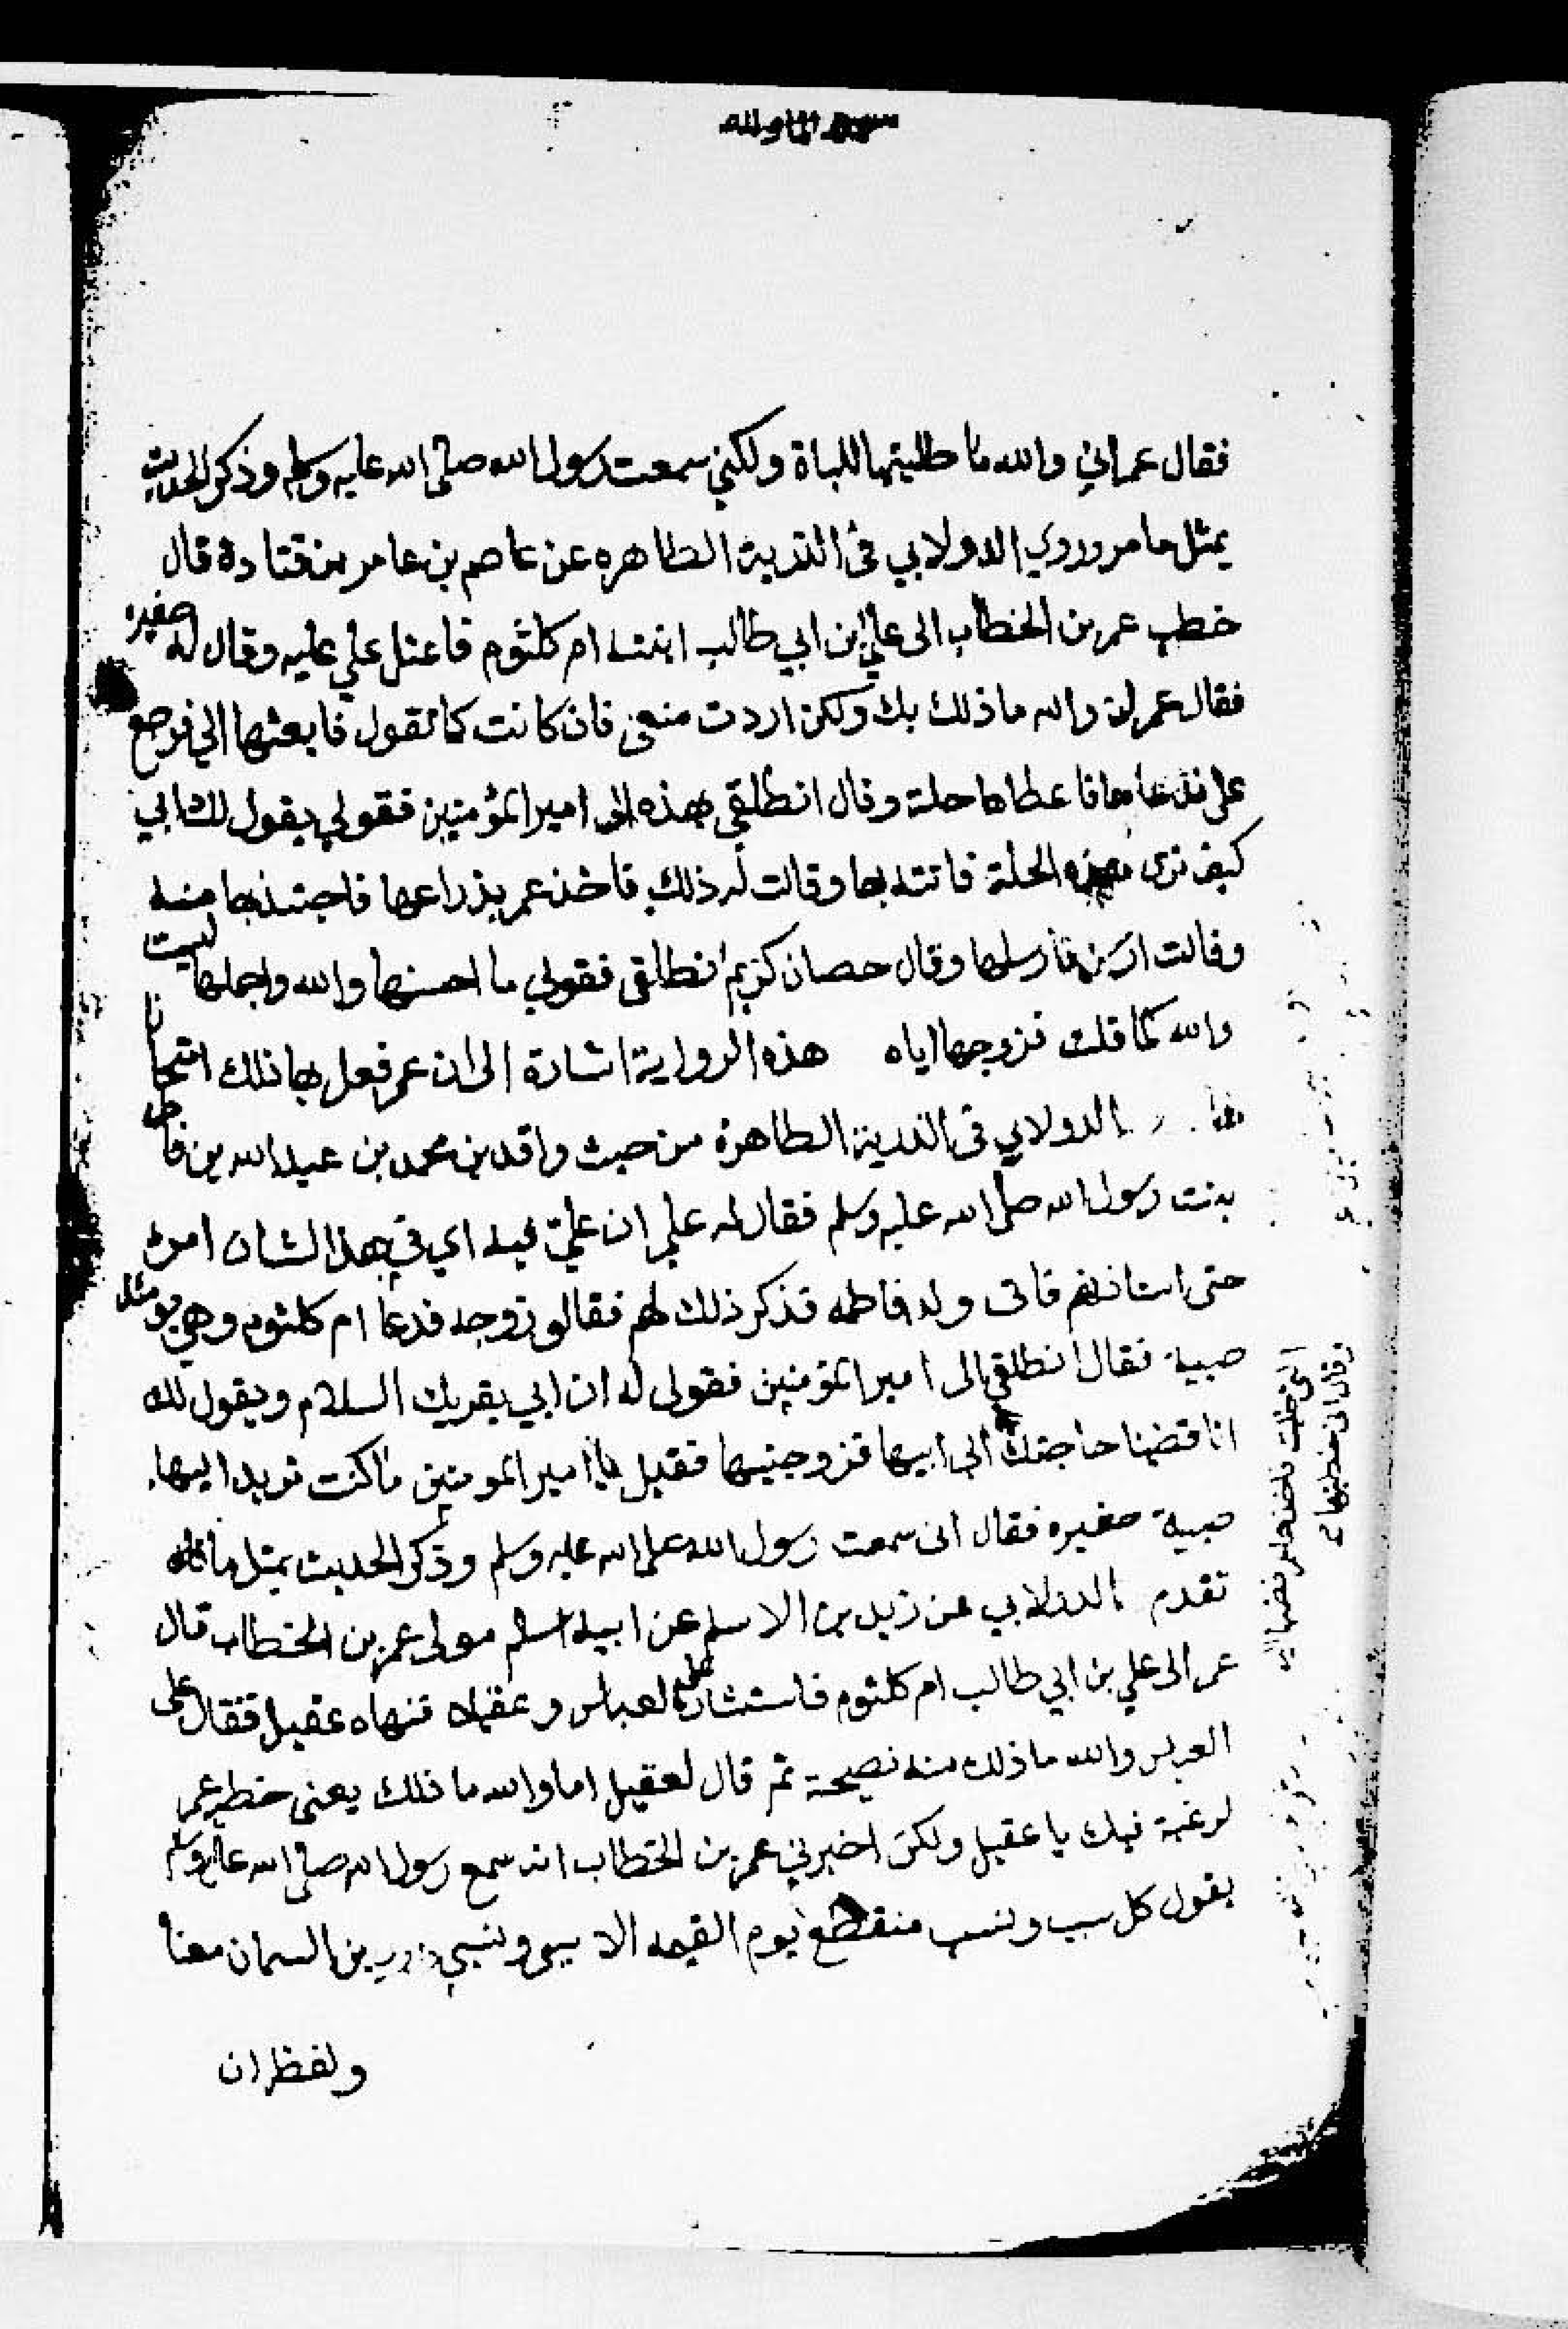 فقال عمراني والله ما طلبتها للباة ولكني سمعت رسول الله صلى الله عليه وسلم وذكر الحديث
بمثل ما مر وروي الدولابي في الذرية الطاهره عن عاصم بن عامر بن قتادة قال
خطب عمر بن الخطاب الى علي بن ابي طالب ابنته ام كلثوم فاعتل علي عليه وقال له صغيره
فقال عمر لا والله ما ذلك بك ولكن اردت منعي فان كانت كما تقول فابعثها الي فرجع
علي فدعاها فاعطاها حلة وقال انطلقي بهذه الى امير المؤمنين فقولي يقول لك ابي
كيف ترى هذه الحلة فاتته بها وقالت له ذلك فاخذ عمر بذراعها فاجتذبها منه
وقالت ارسل فارسلها وقال حصان كريم انطلقي فقولي ما احسنها والله واجملها ليست
والله كما قلت فزوجها اياه هذه الرواية اشارة الى ان عمر فعل بها ذلك امتحانا
الدولابي في الذرية الطاهرة من حيث واقد بن محمد بن عبد الله بن
بنت رسول الله صلى الله عليه وسلم فقال له علي ان علي فيه اي في هذا الشان امراء
حتى استاذنهم فاتى ولد فاطمه فذكر ذلك لهم فقالو زوجه فدعا ام كلثوم وهي يومئذ
صبية فقال انطلقي الى امير المؤمنين فقولي له ان ابي يقريك السلام ويقول لك
انا قضينا حاجتك الى ابيها فزوجنيها فقيل يا امير المومنين ما كنت تريد اليها
صبية صغيره فقال اني سمعت رسول الله صلى الله عليه وسلم وذكر الحديث بمثل ما
تقدم الدولابي عن زيد بن الاسلم عن ابيه اسلم مولى عمر بن الخطاب قال
عمر الى علي بن ابي طالب ام كلثوم فاستشار علي العباس وعقيلا فنهاه عقيل فقال على
العباس والله ما ذلك منه نصيحة ثم قال لعقيل اما والله ما ذلك يعني خطبة عمر
لرغبة فيك يا عقيل ولكن اخبرني عمر بن الخطاب انه سمع رسول الله صلى الله عليه وسلم
يقول كل سبب ونسب منقطع يوم القيمه الا سببي ونسبي بن السمان معنا
ولفظ ان